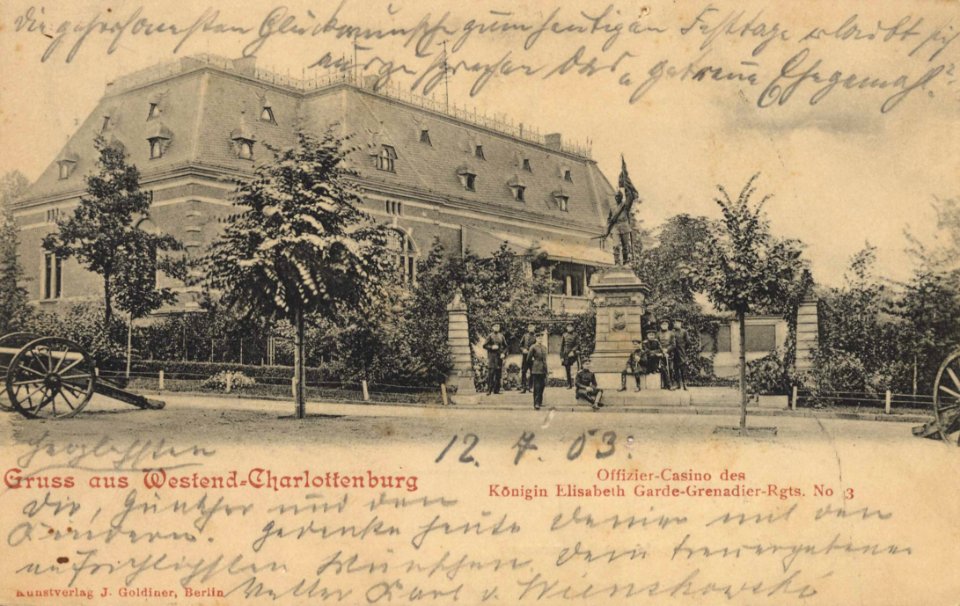 die gehorsamsten Glückwünsche zum heutigen Festtage erlaubt sich
das getreue Ehegemahl
12. 7. 03.
Herzlichsten
Gruss aus Westend-Charlottenburg
Offizier-Casino des
Königin Elisabeth Garde-Grenadier-Rgts. No 3
Dir, Günther und den
Kindern. Gedenke heute Deiner mit den
aufrichtigsten Wünschen. Dein treuergebener
Vetter Karl v. Wienskowski
Kunstverlag J. Goldiner, Berlin